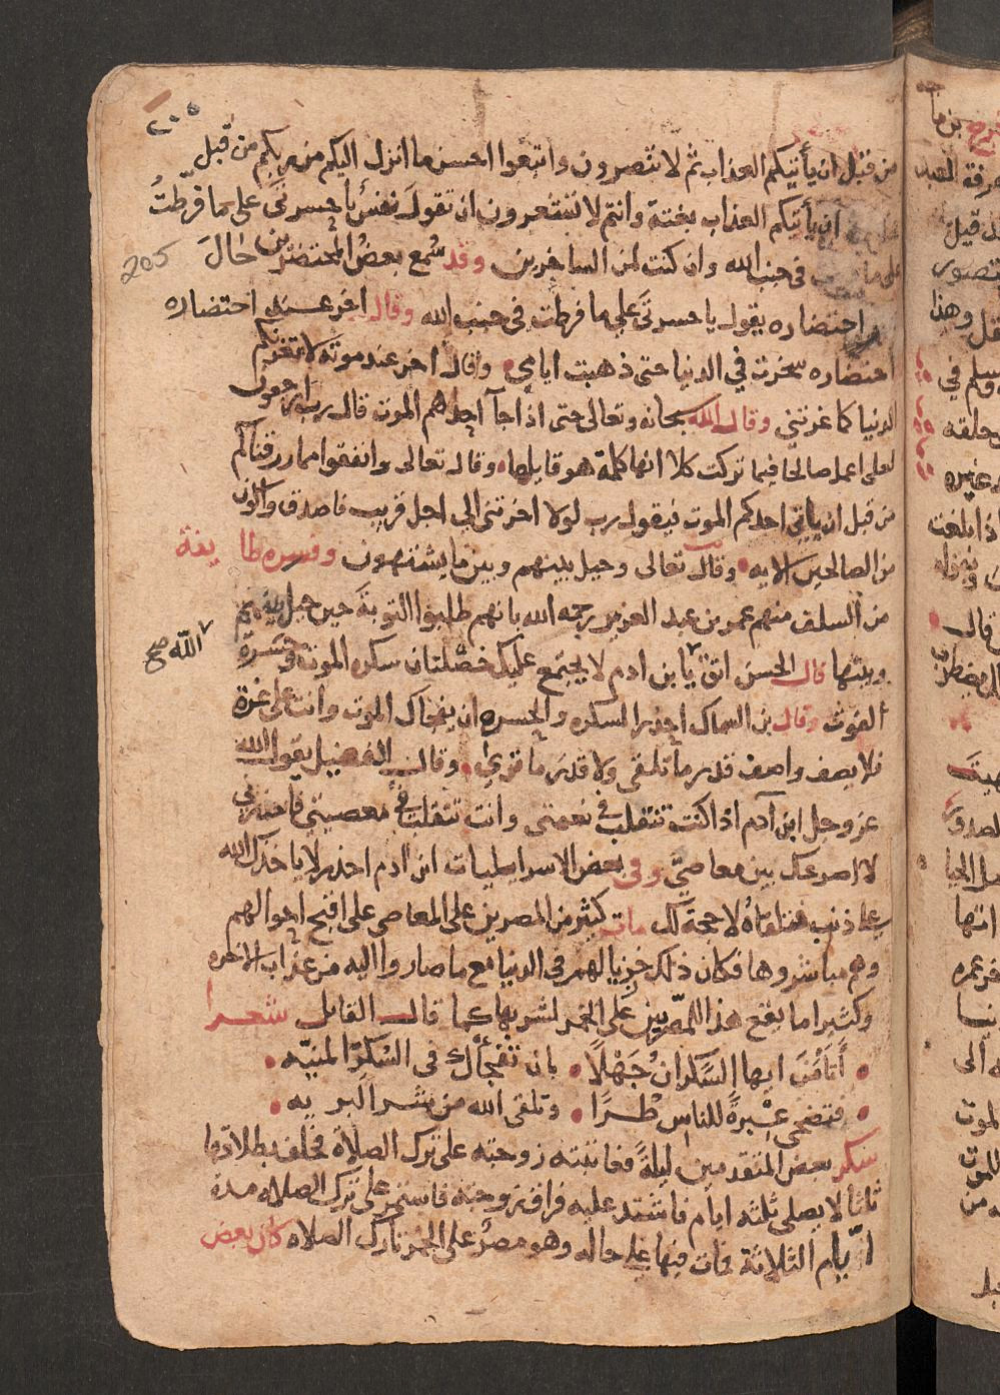 ٢٠٥
من قبل ان يأتيكم العذاب ثم لا تنصرون واتبعوا احسن ما انزل اليكم من ربكم من قبل
ان يأتيكم العذاب بغتة وانتم لا تشعرون ان تقول نفس يا حسرتى على ما فرطتُ
205
في جنب الله وان كنت لمن الساخرين وقد سُمع بعضُ المحتضرين حال
احتضاره يقول يا حسرتى على ما فرطت في جنب الله وقال اخر عند احتضاره
احتضاره سخرت في الدنيا حتى ذهبت ايامي وقال اخر عند موته لا تغرنكم
الدنيا كما غرتني وقال الله سبحانه وتعالى حتى اذا جآ احدهم الموت قال رب ارجعون
لعلى اعمل صالحا فيما تركت كلا انها كلمة هو قايلها وقال تعالى وانفقوا مما رزقناكم
من قبل ان ياتي احدكم الموت فيقول رب لولا اخرتني الى اجل قريب فاصدق واكون
من الصالحين الايه وقال تعالى وحيل بينهم وبين ما يشتهون وفسره طايفة
من السلف منهم عمر بن عبد العزيز رحمه الله بانهم طلبوا التوبة حين حيل بينهم
وبينها قال الحسن اتق يا بن ادم لا يجتمع عليك خصلتان سكرة الموت وحسرة
الله صح
الفوت وقال بن السماك احذر السكره والحسره ان يفجاك الموت وانت على غرة
فلا يصف واصف قدر ما تلقى ولا قدر ما ترى وقال الفضيل يقول الله
عز وجل ابن آدم اذا كنت تتقلب في نعمتي وانت تتقلب في معصيتي فاحذرني
لا اصرعك بين معاصيّ وفي بعض الاسرايليات ابن ادم احذر لا ياخذك الله
على ذنب فتلقاهُ لا حجة لك مات كثير من المصرين على المعاصي على اقبح احوالهم
وهم مباشروها فكان ذلك خزيا لهم في الدنيا مع ما صاروا اليه من عذاب الاخره
وكثيرا ما يقع هذا للمصرين على الخمر لشربها كما قال القايل شعرا
أَتأمَنُ ايها السَّكران جَهْلًا بان تفجأك في السُكر المنيّه
فتضحى عِبْرةً للناس طُرًا وتلقى الله من شر البريه
سكر بعض المتقدمين ليلةً فعاتبته زوجته على ترك الصلاة فحلف بطلاقها
ثلثا لا يصلى ثلثه ايام فاشتد عليه فراق زوجته فاستمر على ترك الصلاه مدة
الايام الثلاثة فمات فيها على حاله وهو مصرٌ على الخمر تارك الصلاه كان بعض